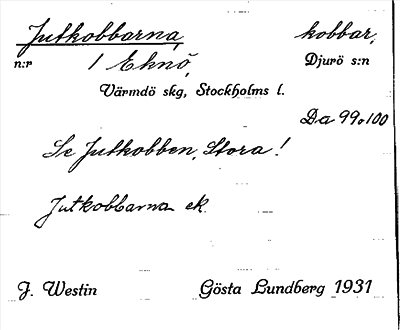 Jutkobbarna, kobbar,
n:r 1 Eknö, Djurö s:n
Värmdö skg, Stockholms l.
Da 99o100
Se Jutkobben, Stora!
Jutkobbarna ek.
J. Westin Gösta Lundberg 1931